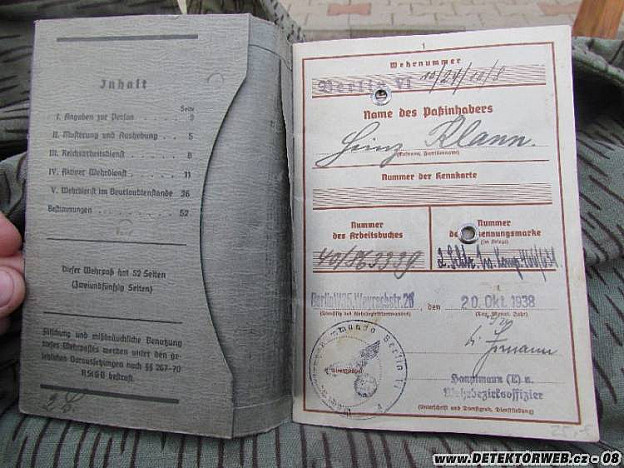 Inhalt
Seite
I. Angaben zur Person 3
II. Musterung und Aushebung 5
III. Reichsarbeitsdienst 8
IV. Aktiver Wehrdienst 11
V. Wehrdienst im Beurlaubtenstande 26
Bestimmungen 52
Dieser Wehrpaß hat 52 Seiten
(Zweiundfünfzig Seiten)
Fälschung und mißbräuchliche Benutzung
dieses Wehrpasses werden unter den ge-
setzlichen Voraussetzungen nach §§ 267-70
RStGB bestraft.
1
Wehrnummer
Berlin VI
Name des Paßinhabers
Heinz Klann.
(Rufname, Familienname)
Nummer der Kennkarte
Nummer
des Arbeitsbuches
Nummer
der Erkennungsmarke
(im Kriege)
Berlin W35,
28, den 20. Okt. 1938
(Tag, Monat, Jahr)
Hauptmann (E) u.
Wehrbezirksoffizier
(Unterschrift und Dienstgrad, Dienststellung)
www.DETEKTORWEB.cz - 08